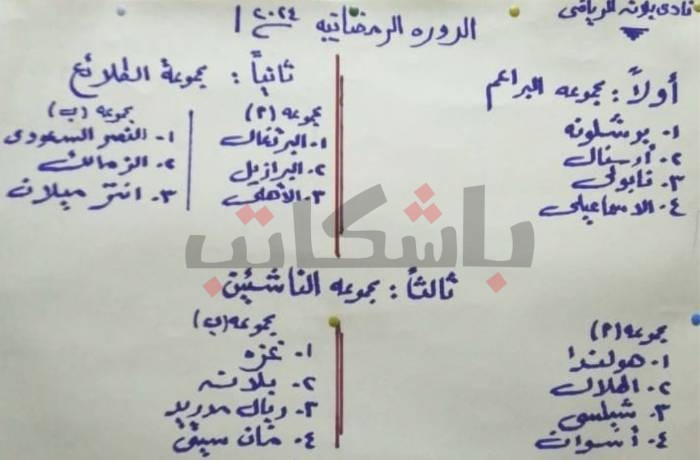 نادى بلانه الرياضى
الدوره الرمضانيه ٢٠٢٤
أولاً: مجموعه البراعم
١- برشلونه
٢- أرسنال
٣- نابولى
٤- الاسماعيلى
ثانياً: مجموعة الطلائع
مجموعه (٢)
١- البرتغال
٢- البرازيل
٣- الأهلى
مجموعه (ب)
١- النصر السعودى
٢- الزمالك
٣- انتر ميلان
باشكاتب
ثالثاً: مجموعه الناشئين
مجموعه (٢)
١- هولندا
٢- الهلال
٣- شيلسى
٤- أسوان
مجموعه (ب)
١- غزه
٢- بلانه
٣- ريال مدريد
٤- مان سيتى